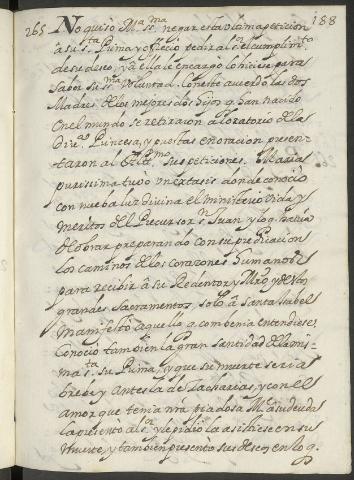 188
265 No quiso M.ª ss.ma negar esta ultima peticion
à su s.ta Prima y ofreciò pedir al s.r el cumplim.to
de su deseo, y à ella le encargò lo hiciese para
saber su ss.ma voluntad. Con este acuerdo las dos
Madres de los mejores dos hijos q. han nacido
en el mundo se retiraron al oratorio de la
Divª Princesa, y puestas en oracion presen-
taron al Altt.mo sus peticiones. Maria
purissima tuvo un extasis donde conociò
con nueba luz divina el ministerio vida y
meritos del Precursor s.n Juan y lo q. havia
de obrar preparando con su predicacion
los caminos de los corazones humanos
para recibir à su Redentor y Mrõ, y de los
grandes sacramentos, solo à santa Isabel
manifestò aquello q. combenia entendiese.
Conociò tambien la gran santidad de la mis-
ma s.ta su Prima, y que su muerte seria
brebe y antes la de Zacharias, y con el
amor que tenia nrã piadosa M.e à su deuda
la presentò al s.r y le pidiò la asistiese en su
muerte, y tambien presentò sus deseos en lo q.